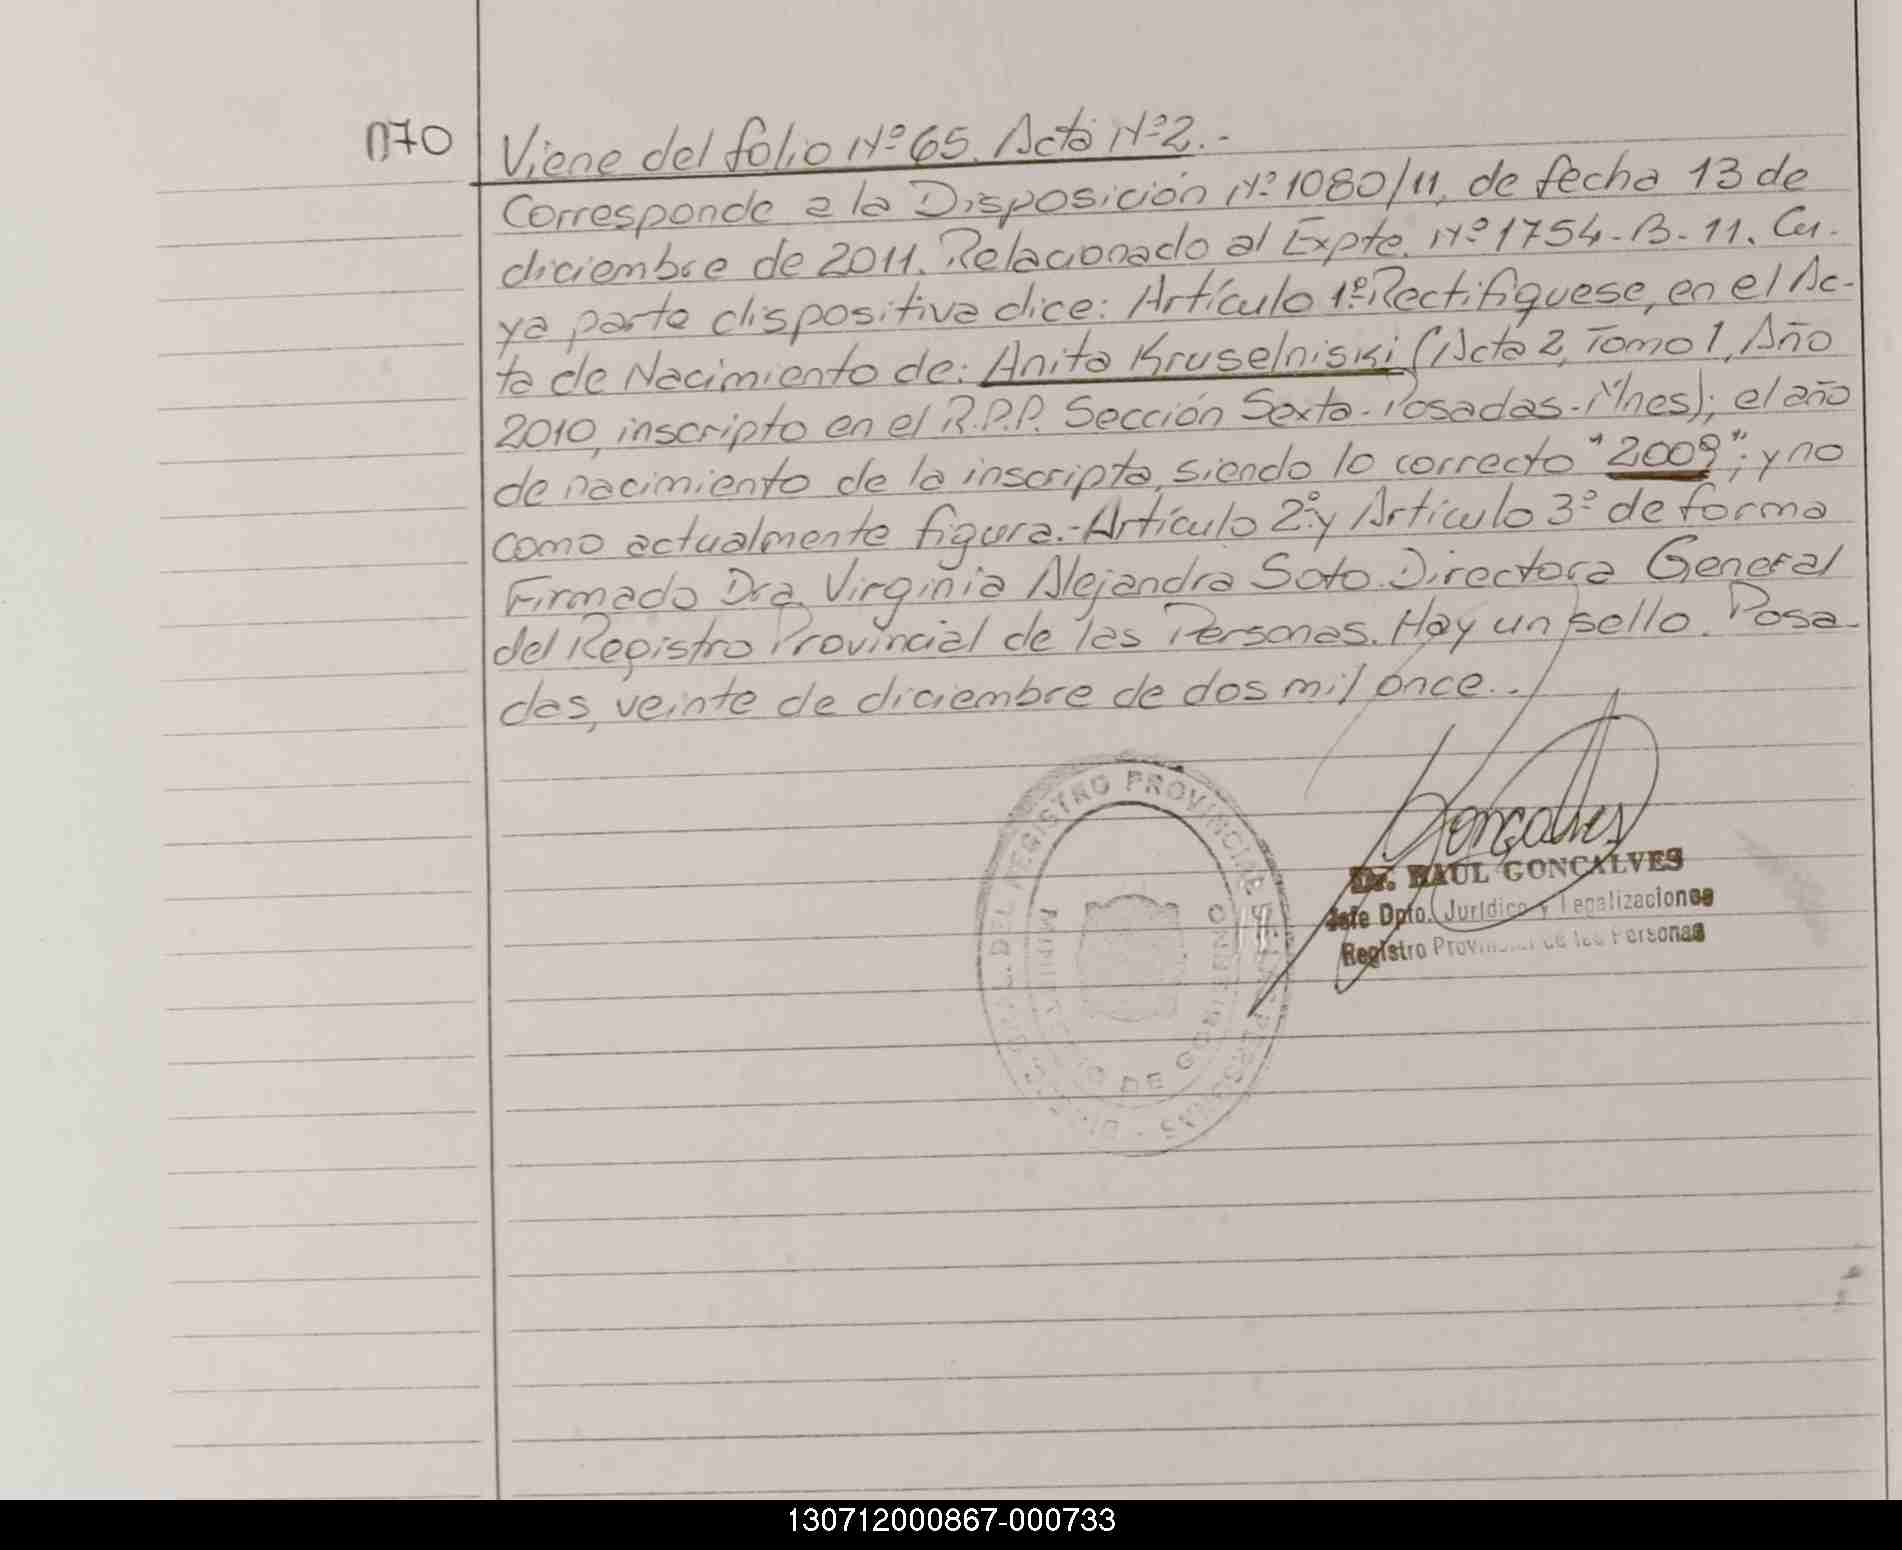 070
Viene del folio Nº 65. Acta Nº 2.-
Corresponde a la Disposición Nº 1080/11, de fecha 13 de
diciembre de 2011. Relacionado al Expte. Nº 1754-B-11. Cu-
ya parte dispositiva dice: Artículo 1º: Rectifíquese, en el Ac-
ta de Nacimiento de: Anita Kruselniski (Acta 2, Tomo 1, Año
2010, inscripto en el R.P.P. Sección Sexta-Posadas-Mnes); el año
de nacimiento de la inscripta, siendo lo correcto "2009"; y no
como actualmente figura.- Artículo 2º y Artículo 3º de forma
Firmado Dra. Virginia Alejandra Soto. Directora General
del Registro Provincial de las Personas. Hay un sello. Posa-
das, veinte de diciembre de dos mil once.-
DEL REGISTRO PROVINCIAL DE LAS PERSONAS
MINISTERIO DE GOBIERNO
Gonçalves
Dr. RAUL GONCALVES
Jefe Dpto. Jurídico y Legalizaciones
Registro Provincial de las Personas
130712000867-000733